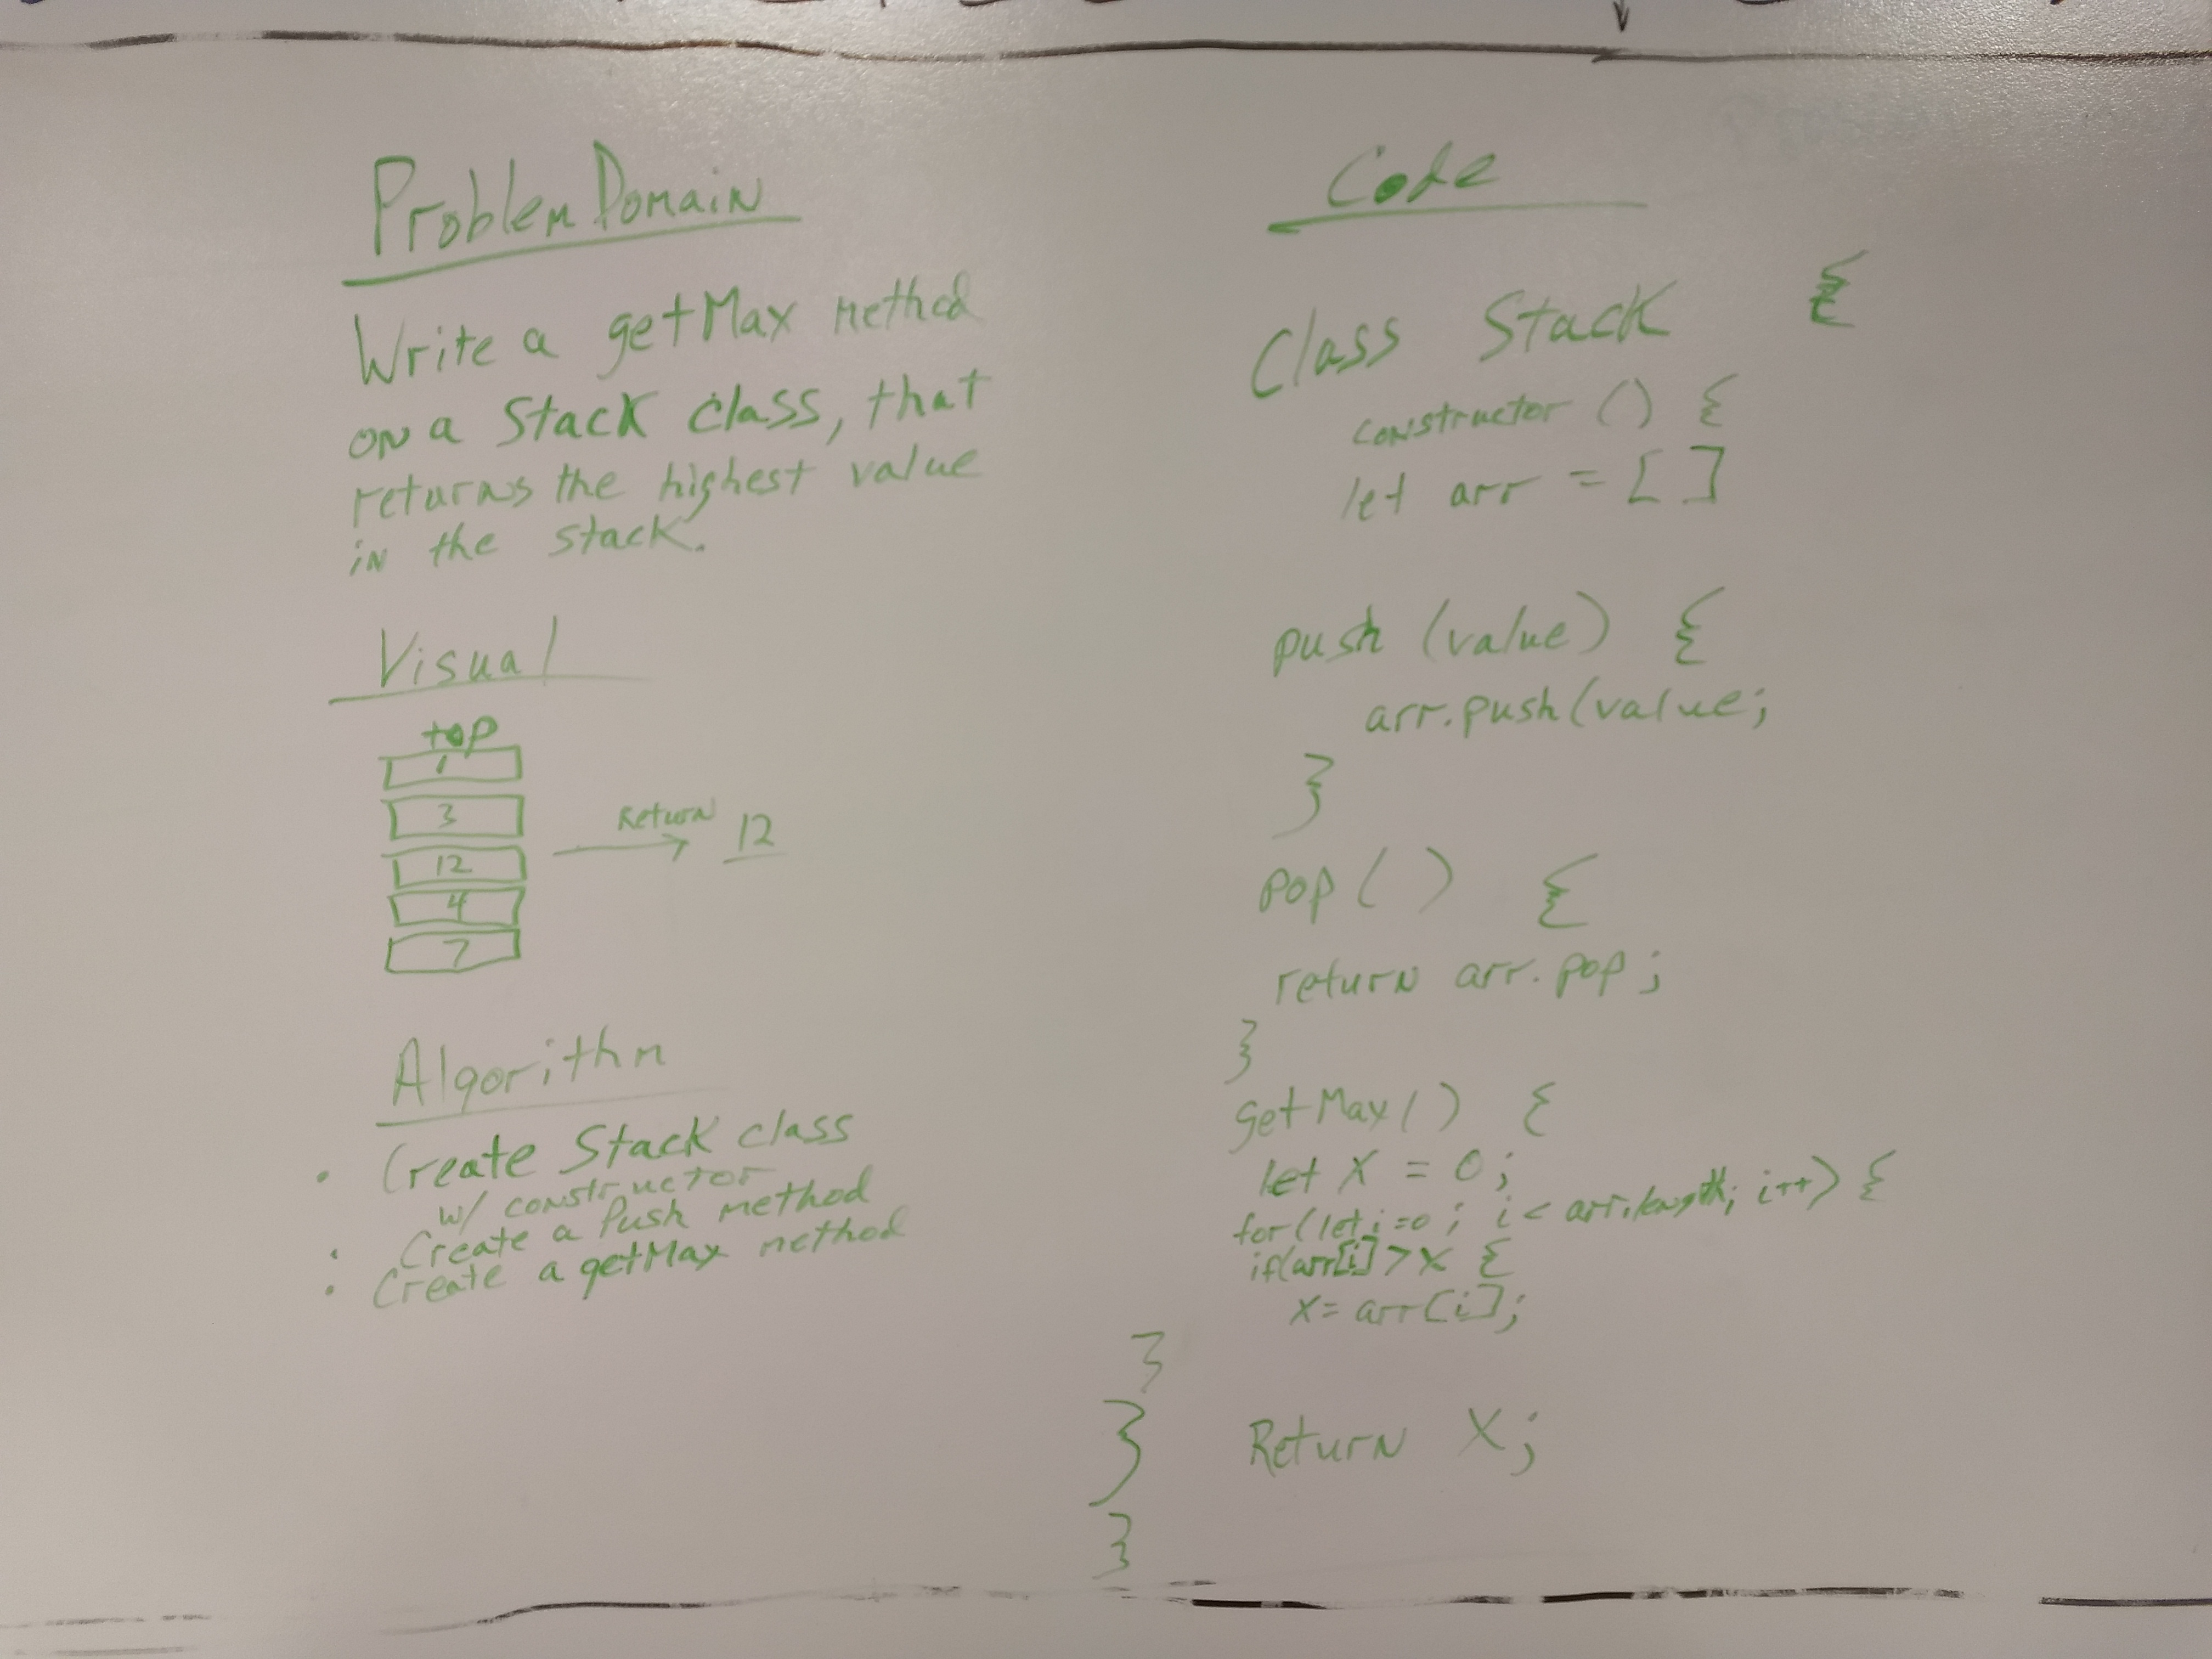 Problem Domain
Write a getMax method
on a Stack class, that
returns the highest value
in the stack.
Visual
top
1
3
12
4
7
Return
12
Algorithm
• Create Stack class
w/ constructor
• Create a Push method
• Create a getMax method
Code
Class Stack {
constructor () {
let arr = []
push (value) {
arr.push(value;
}
pop() {
return arr.pop;
}
getMax() {
let x = 0;
for(let i=0; i < arr.length; i++) {
if(arr[i] > x {
x = arr[i];
}
} Return x;
}